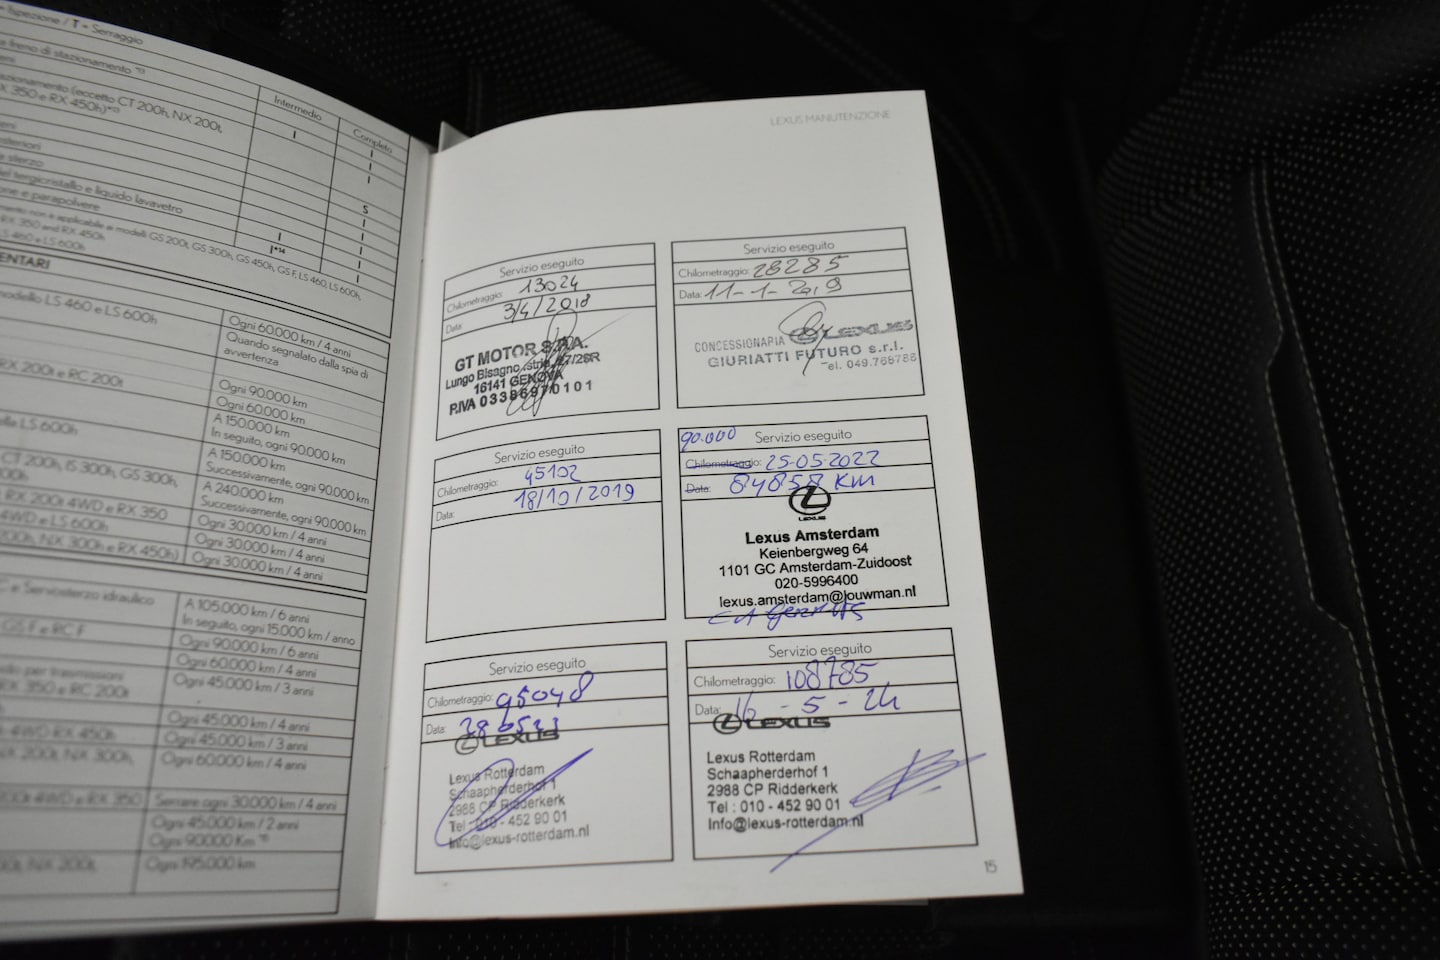 = Ispezione / T = Serraggio
freno di stazionamento *13
Intermedio
Completo
stazionamento (eccetto CT 200h, NX 200t,
X 350 e RX 450h)*13
I
I
I
I
steriori
sterzo
S
del tergicristallo e liquido lavavetro
I
one e parapolvere
I
I
I*14
I
modelli GS 200t, GS 300h, GS 450h, GS F, LS 460, LS 600h,
RX 350 and RX 450h
LS 460 e LS 600h
ENTARI
modello LS 460 e LS 600h
Ogni 60.000 km / 4 anni
Quando segnalato dalla spia di
avvertenza
RX 200t e RC 200t
Ogni 90.000 km
Ogni 60.000 km
A 150.000 km
In seguito, ogni 90.000 km
LS 600h
A 150.000 km
Successivamente, ogni 90.000 km
CT 200h, IS 300h, GS 300h,
A 240.000 km
Successivamente, ogni 90.000 km
RX 200t 4WD e RX 350
Ogni 30.000 km / 4 anni
4WD e LS 600h
Ogni 30.000 km / 4 anni
NX 300h e RX 450h)
Ogni 30.000 km / 4 anni
e Servosterzo idraulico
A 105.000 km / 6 anni
In seguito, ogni 15.000 km / anno
e RC F
Ogni 90.000 km / 6 anni
Ogni 60.000 km / 4 anni
RX 350 e RC 200t
Ogni 45.000 km / 3 anni
Ogni 45.000 km / 4 anni
RX 450h
Ogni 45.000 km / 3 anni
NX 200t, NX 300h,
Ogni 60.000 km / 4 anni
200t 4WD e RX 350
Serrare ogni 30.000 km / 4 anni
Ogni 45.000 km / 2 anni
Ogni 90000 Km
NX 200t
Ogni 195.000 km
LEXUS MANUTENZIONE
Servizio eseguito
Chilometraggio: 13024
Data: 3/4/2018
GT MOTOR S.P.A.
Lungo Bisagno Istria, 27/28R
16141 GENOVA
P.IVA 03386970101
Servizio eseguito
Chilometraggio: 28285
Data: 11-1-2019
CONCESSIONARIA LEXUS
GIURIATTI FUTURO s.r.l.
Tel. 049.768788
Servizio eseguito
Chilometraggio: 45102
Data: 18/10/2019
90.000 Servizio eseguito
Chilometraggio: 25-05-2022
Data: 84858 KM
LEXUS
Lexus Amsterdam
Keienbergweg 64
1101 GC Amsterdam-Zuidoost
020-5996400
lexus.amsterdam@louwman.nl
Servizio eseguito
Chilometraggio: 95048
Data:
LEXUS
Lexus Rotterdam
Schaapherderhof 1
2988 CP Ridderkerk
Tel : 010 - 452 90 01
Info@lexus-rotterdam.nl
Servizio eseguito
Chilometraggio: 108785
Data: 16 - 5 - 24
LEXUS
Lexus Rotterdam
Schaapherderhof 1
2988 CP Ridderkerk
Tel : 010 - 452 90 01
Info@lexus-rotterdam.nl
15